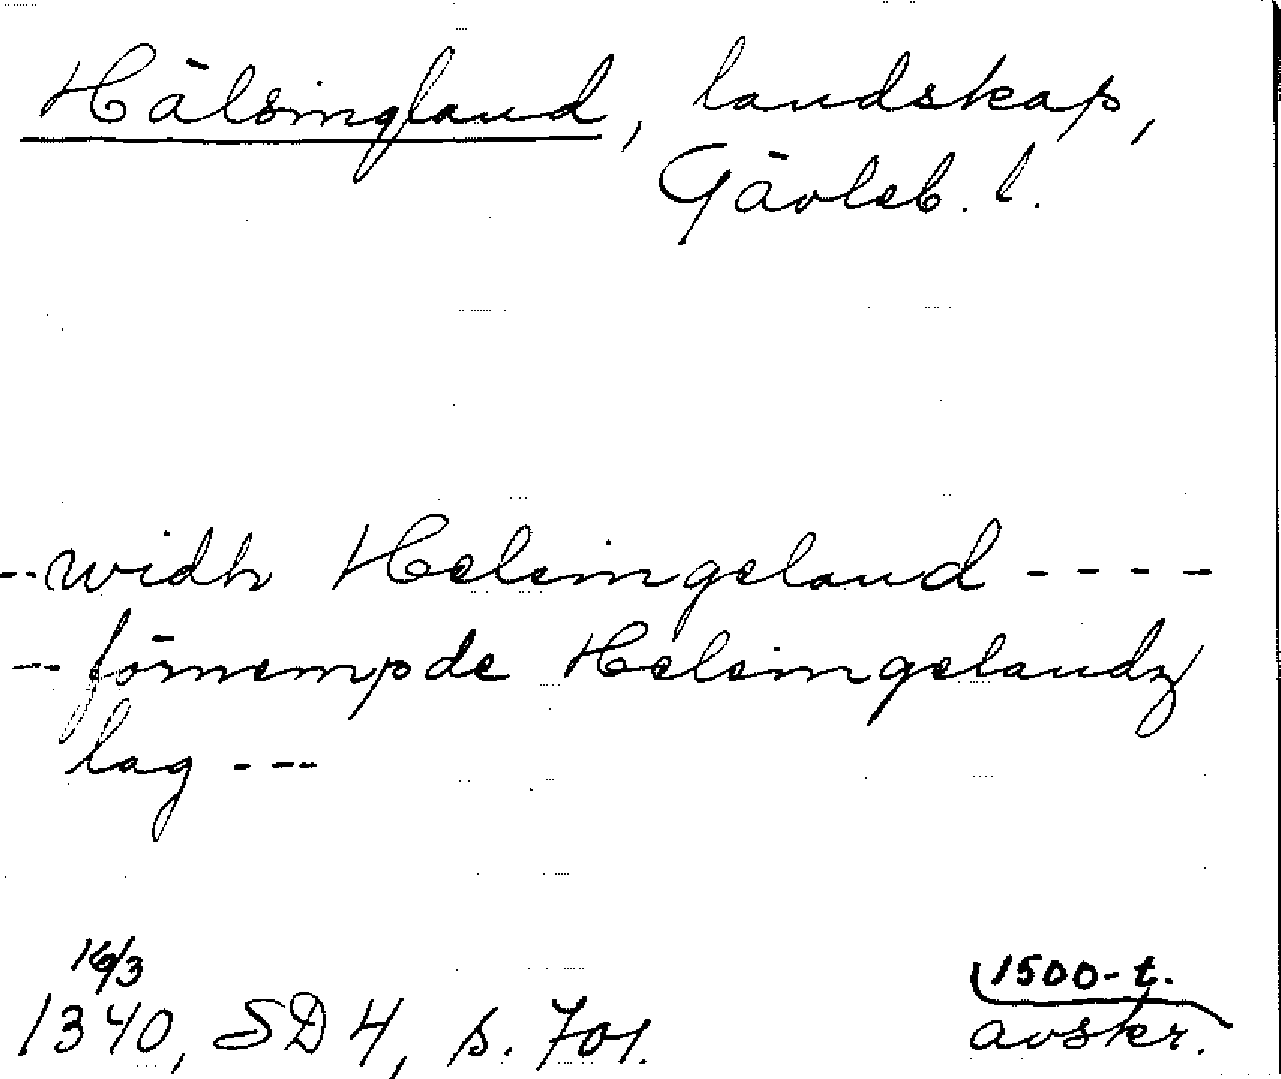 Hälsingland, landskap,
Gävleb. l.
-- widh Helsingeland ----
-- förnempde Helsingelandz
lag ---
16/3
1340, SD 4, s. 701.
1500-t.
avskr.